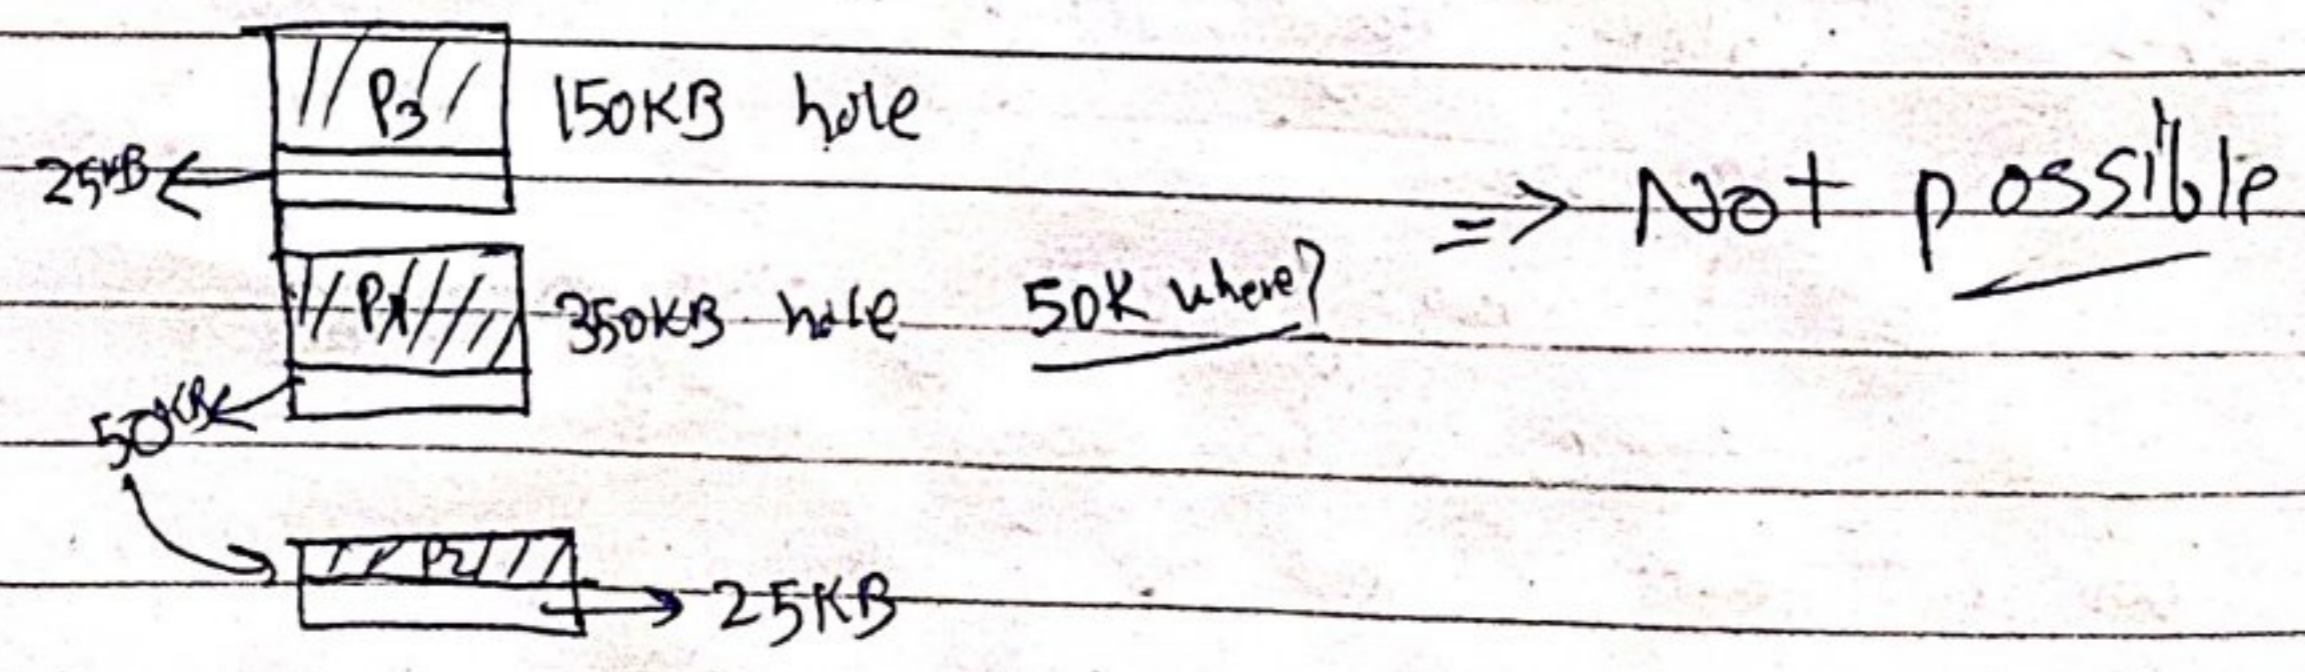 P3 150KB hole
25KB
=> Not possible
P1 350KB hole 50K where?
50KB
P2
25KB